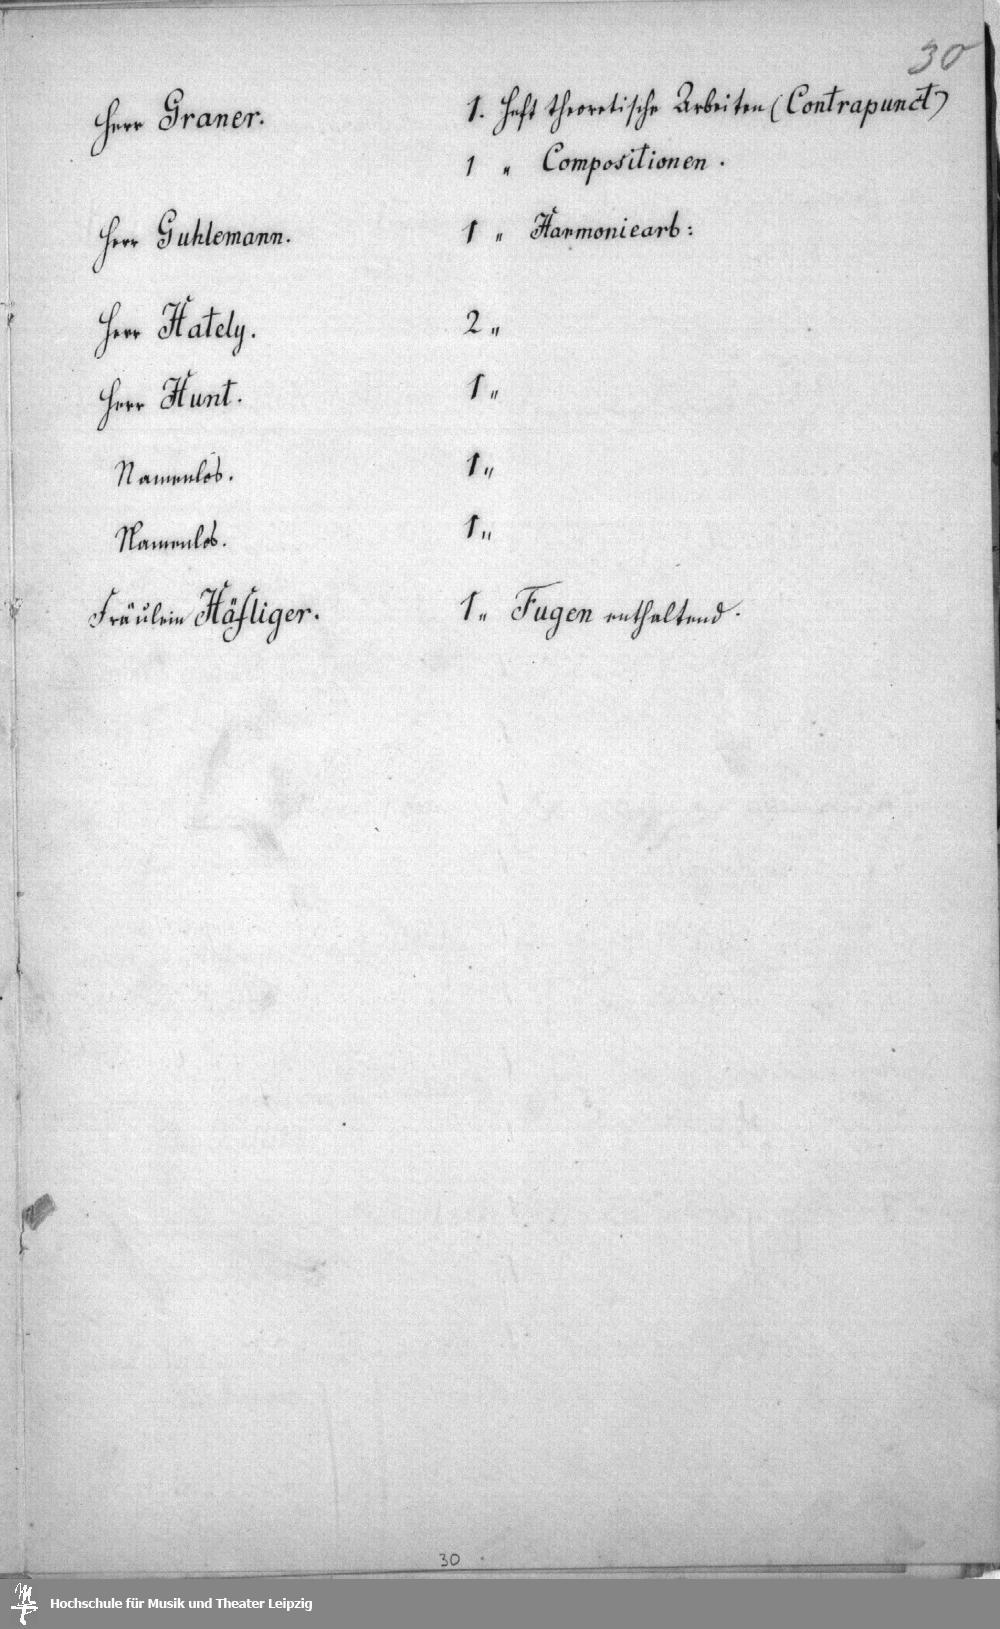 30
Herr Graner. 1. Heft theoretische Arbeiten (Contrapunct)
1 " Compositionen.
Herr Guhlemann. 1 " Harmoniearb:
Herr Hately. 2 "
Herr Hunt. 1 "
Namenlos. 1 "
Namenlos. 1 "
Fräulein Häfliger. 1 " Fugen enthaltend.
30
Hochschule für Musik und Theater Leipzig